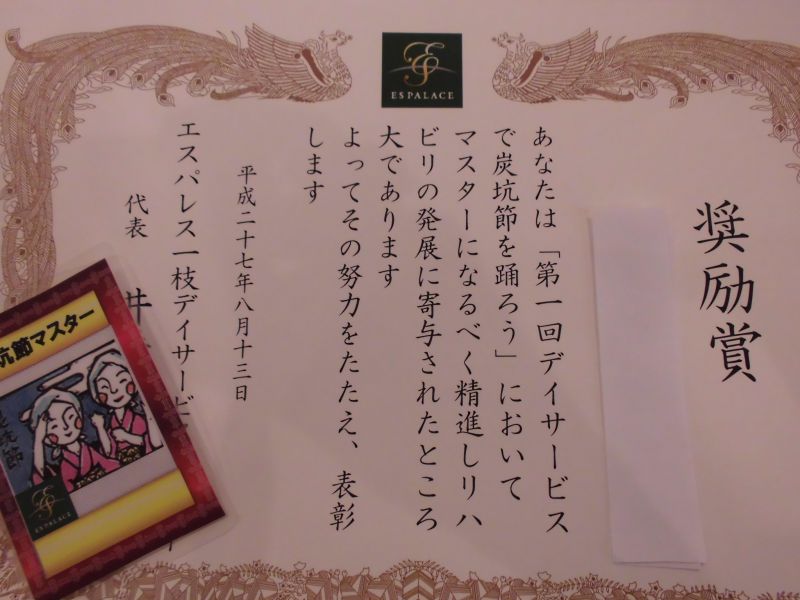 ESPALACE
奨励賞
あなたは「第一回デイサービス
で炭坑節を踊ろう」において
マスターになるべく精進しリハ
ビリの発展に寄与されたところ
大であります
よってその努力をたたえ、表彰
します
平成二十七年八月十三日
エスパレス一枝デイサービ
代表 井
坑節マスター
炭坑節
ESPALACE